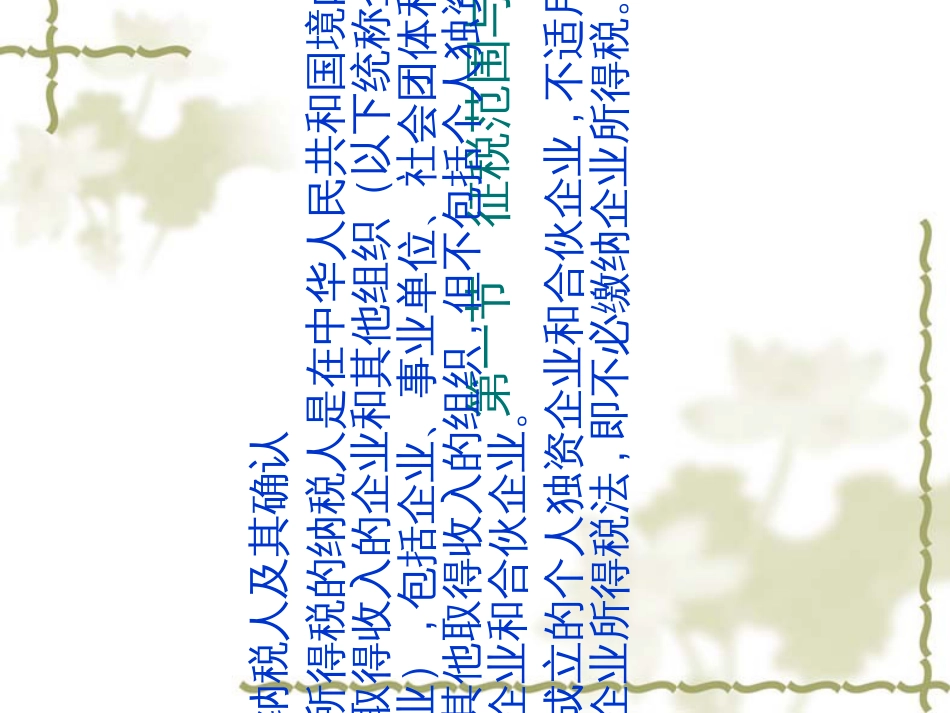 第一节 征税范围与
纳税人及其确认
所得税的纳税人是在中华人民共和国境
取得收入的企业和其他组织（以下统称
业），包括企业、事业单位、社会团体和
其他取得收入的组织，但不包括个人独资
企业和合伙企业。
成立的个人独资企业和合伙企业，不适用
企业所得税法，即不必缴纳企业所得税。